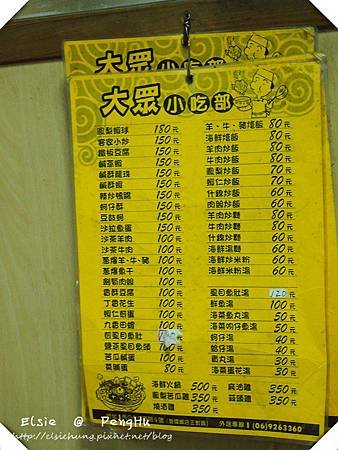 大眾小吃部
大眾小吃部
鳳梨蝦球 180元
客家小炒 150元
鐵板豆腐 150元
鹹茶蝦 150元
鹹酥龍珠 150元
鹹酥蝦 150元
辣炒鴨腸 150元
蚵仔酥 150元
豆豉蚵 150元
沙拉魚蛋 150元
沙茶羊肉 100元
沙茶牛肉 100元
蔥爆羊、牛、豬 100元
蔥爆魚干 100元
100元
100元
丁香花生 100元
蝦仁煎蛋 100元
九層田螺 100元
鹽茶虱目魚頭 100元
苦瓜鹹蛋 100元
菜脯蛋 80元
羊、牛、豬燴飯 80元
海鮮燴飯 80元
羊肉炒飯 80元
牛肉炒飯 80元
鳳梨炒飯 60元
蝦仁炒飯 60元
什錦炒飯 60元
肉絲炒飯 60元
羊肉炒麵 80元
牛肉炒麵 80元
什錦炒麵 60元
海鮮湯麵 60元
海鮮炒米粉 60元
海鮮米粉湯 60元
虱目魚肚湯 120元
鮮魚湯 100元
海菜魚丸湯 50元
海菜吻仔魚湯 50元
蚵仔湯 40元
蛤仔湯 40元
貢丸湯 30元
海菜蛋花湯 30元
海鮮火鍋 500元
鳳梨苦瓜雞 350元
燒酒雞 350元
麻油雞 350元
蒜頭雞 350元
外送專線：(06)9263360
Elsie @ PengHu
http://elsiechung.pixnet.net/blog